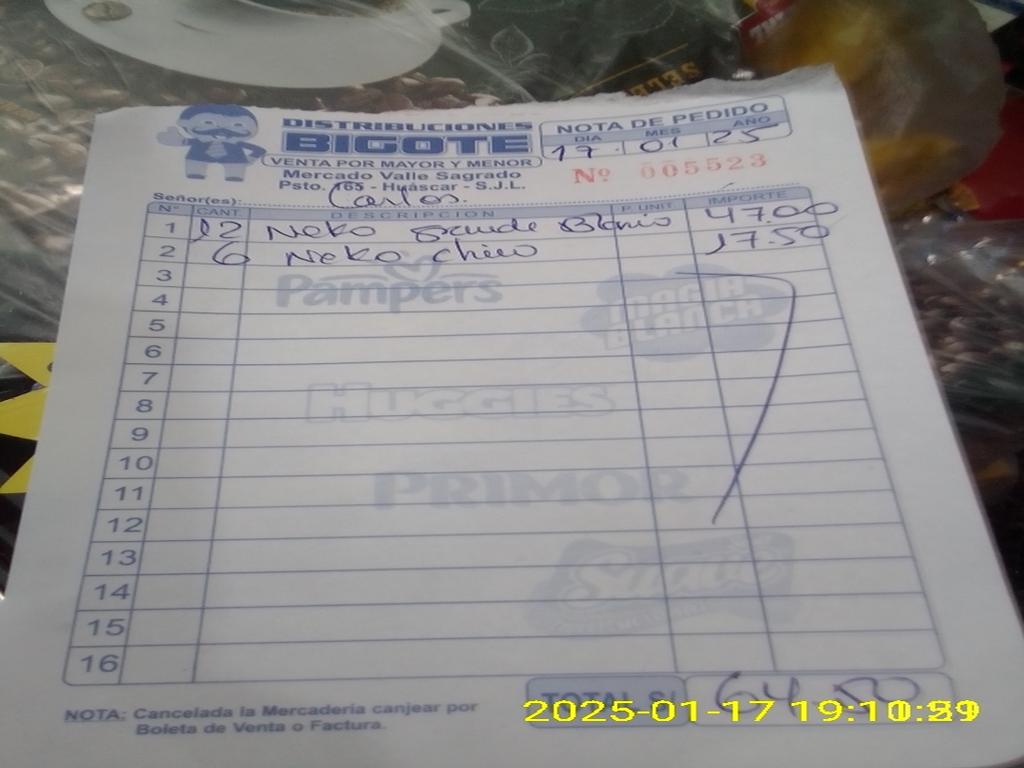 DISTRIBUCIONES
BIGOTE
VENTA POR MAYOR Y MENOR
Mercado Valle Sagrado
Psto. 165 - Huáscar - S.J.L.
NOTA DE PEDIDO
DIA MES AÑO
17 01 25
Nº 005523
Señor(es): Carlos.
Nº CANT. DESCRIPCION P. UNIT. IMPORTE
1 12 Neko grande Blanco 47.00
2 6 Neko chico 17.50
3
4
5
6
7
8
9
10
11
12
13
14
15
16
Pampers
MAGIA
BLANCA
HUGGIES
PRIMOR
Suave
TOTAL S/ 64.50
NOTA: Cancelada la Mercadería canjear por
Boleta de Venta o Factura.
2025-01-17 19:10